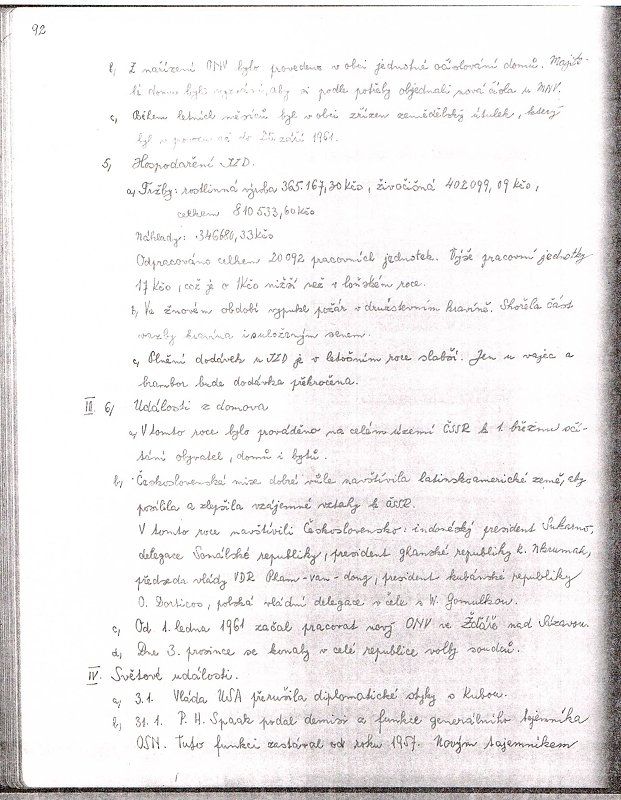 92
b, Z nařízení ONV bylo provedeno v obci jednotné očíslování domů. Majite-
lé domů byli vyzváni, aby si podle potřeby objednali nová čísla u MNV.
c, Během letních měsíců byl v obci zřízen zemědělský útulek, který
byl v provozu až do září 1961.
5, Hospodaření JZD.
a, Tržby: rostlinná výroba 365.167,30 Kčs, živočišná 402099,09 Kčs,
celkem 810533,60 Kčs
Náhlady: 346680,33 Kčs
Odpracováno celkem 20092 pracovních jednotek. Výše pracovní jednotky
17 Kčs, což je o 1 Kčs nižší než v loňském roce.
b, Ve žňovém období vypukl požár v družstevním kravíně. Shořela část
vazby kravína i s uloženým senem.
c, Plnění dodávek u JZD je v letošním roce slabší. Jen u vajec a
brambor bude dodávka překročena.
III 6, Události z domova
a, V tomto roce bylo prováděno na celém území ČSSR k 1. březnu sčí-
tání obyvatel, domů i bytů.
b, Československá mise dobré vůle navštívila latinskoamerické země, aby
posílila a zlepšila vzájemné vztahy k ČSSR.
V tomto roce navštívili Československo: indonéský president Sukarno,
delegace Somálské republiky, president ghanské republiky K. Nkrumah,
předseda vlády VDR Pham-van-dong, president kubánské republiky
O. Dorticos, polská vládní delegace v čele s W. Gomulkou.
c, Od 1. ledna 1961 začal pracovat nový ONV ve Žďáře nad Sázavou.
d, Dne 3. prosince se konaly v celé republice volby soudců.
IV. Světové události.
a, 3.1. Vláda USA přerušila diplomatické styky s Kubou.
b, 31.1. P. H. Spaak podal demisi z funkce generálního tajemníka
OSN. Tuto funkci zastával od roku 1957. Novým tajemníkem